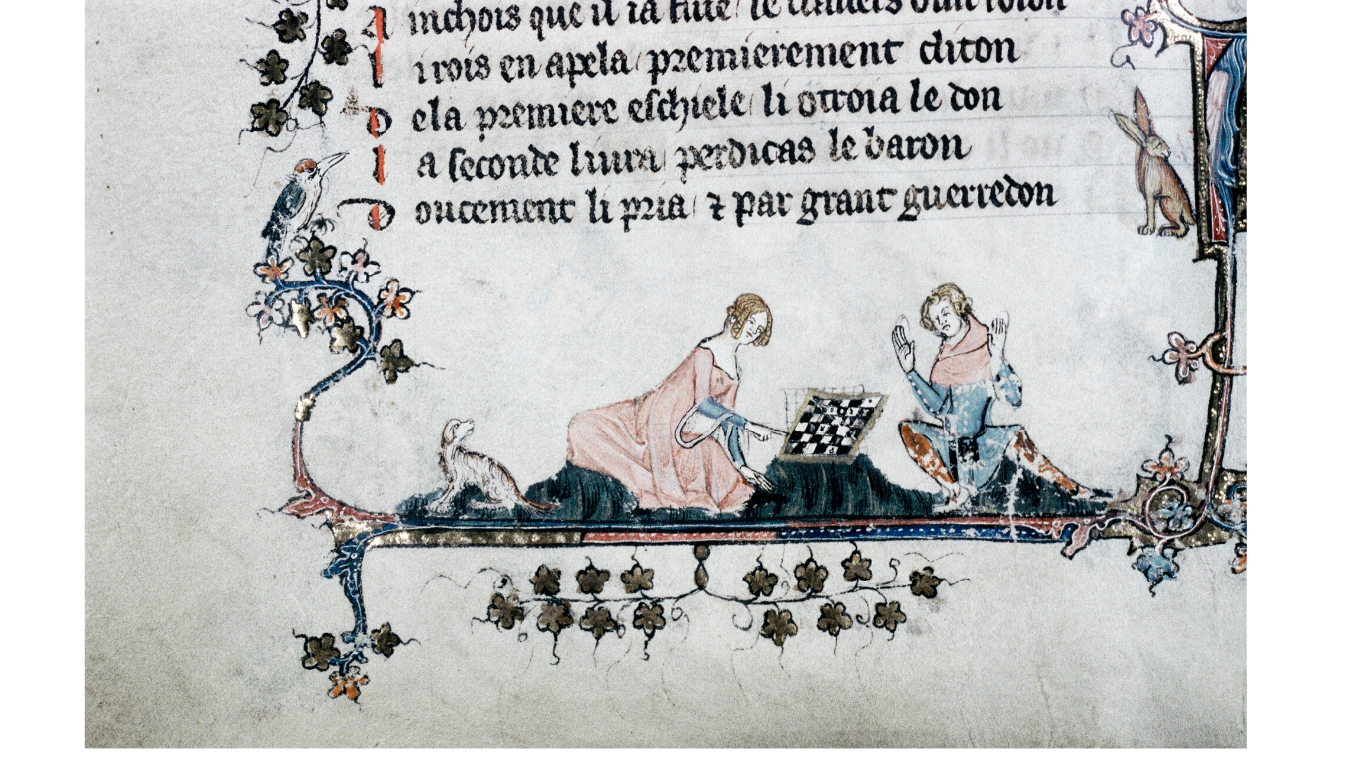 A inchois que il ia fiue le
L i rois en apela premierement cliton
D ela premiere eschiele li otroia le don
L a seconde liura perdicas le baron
D oucement li pria ⁊ par grant guerredon